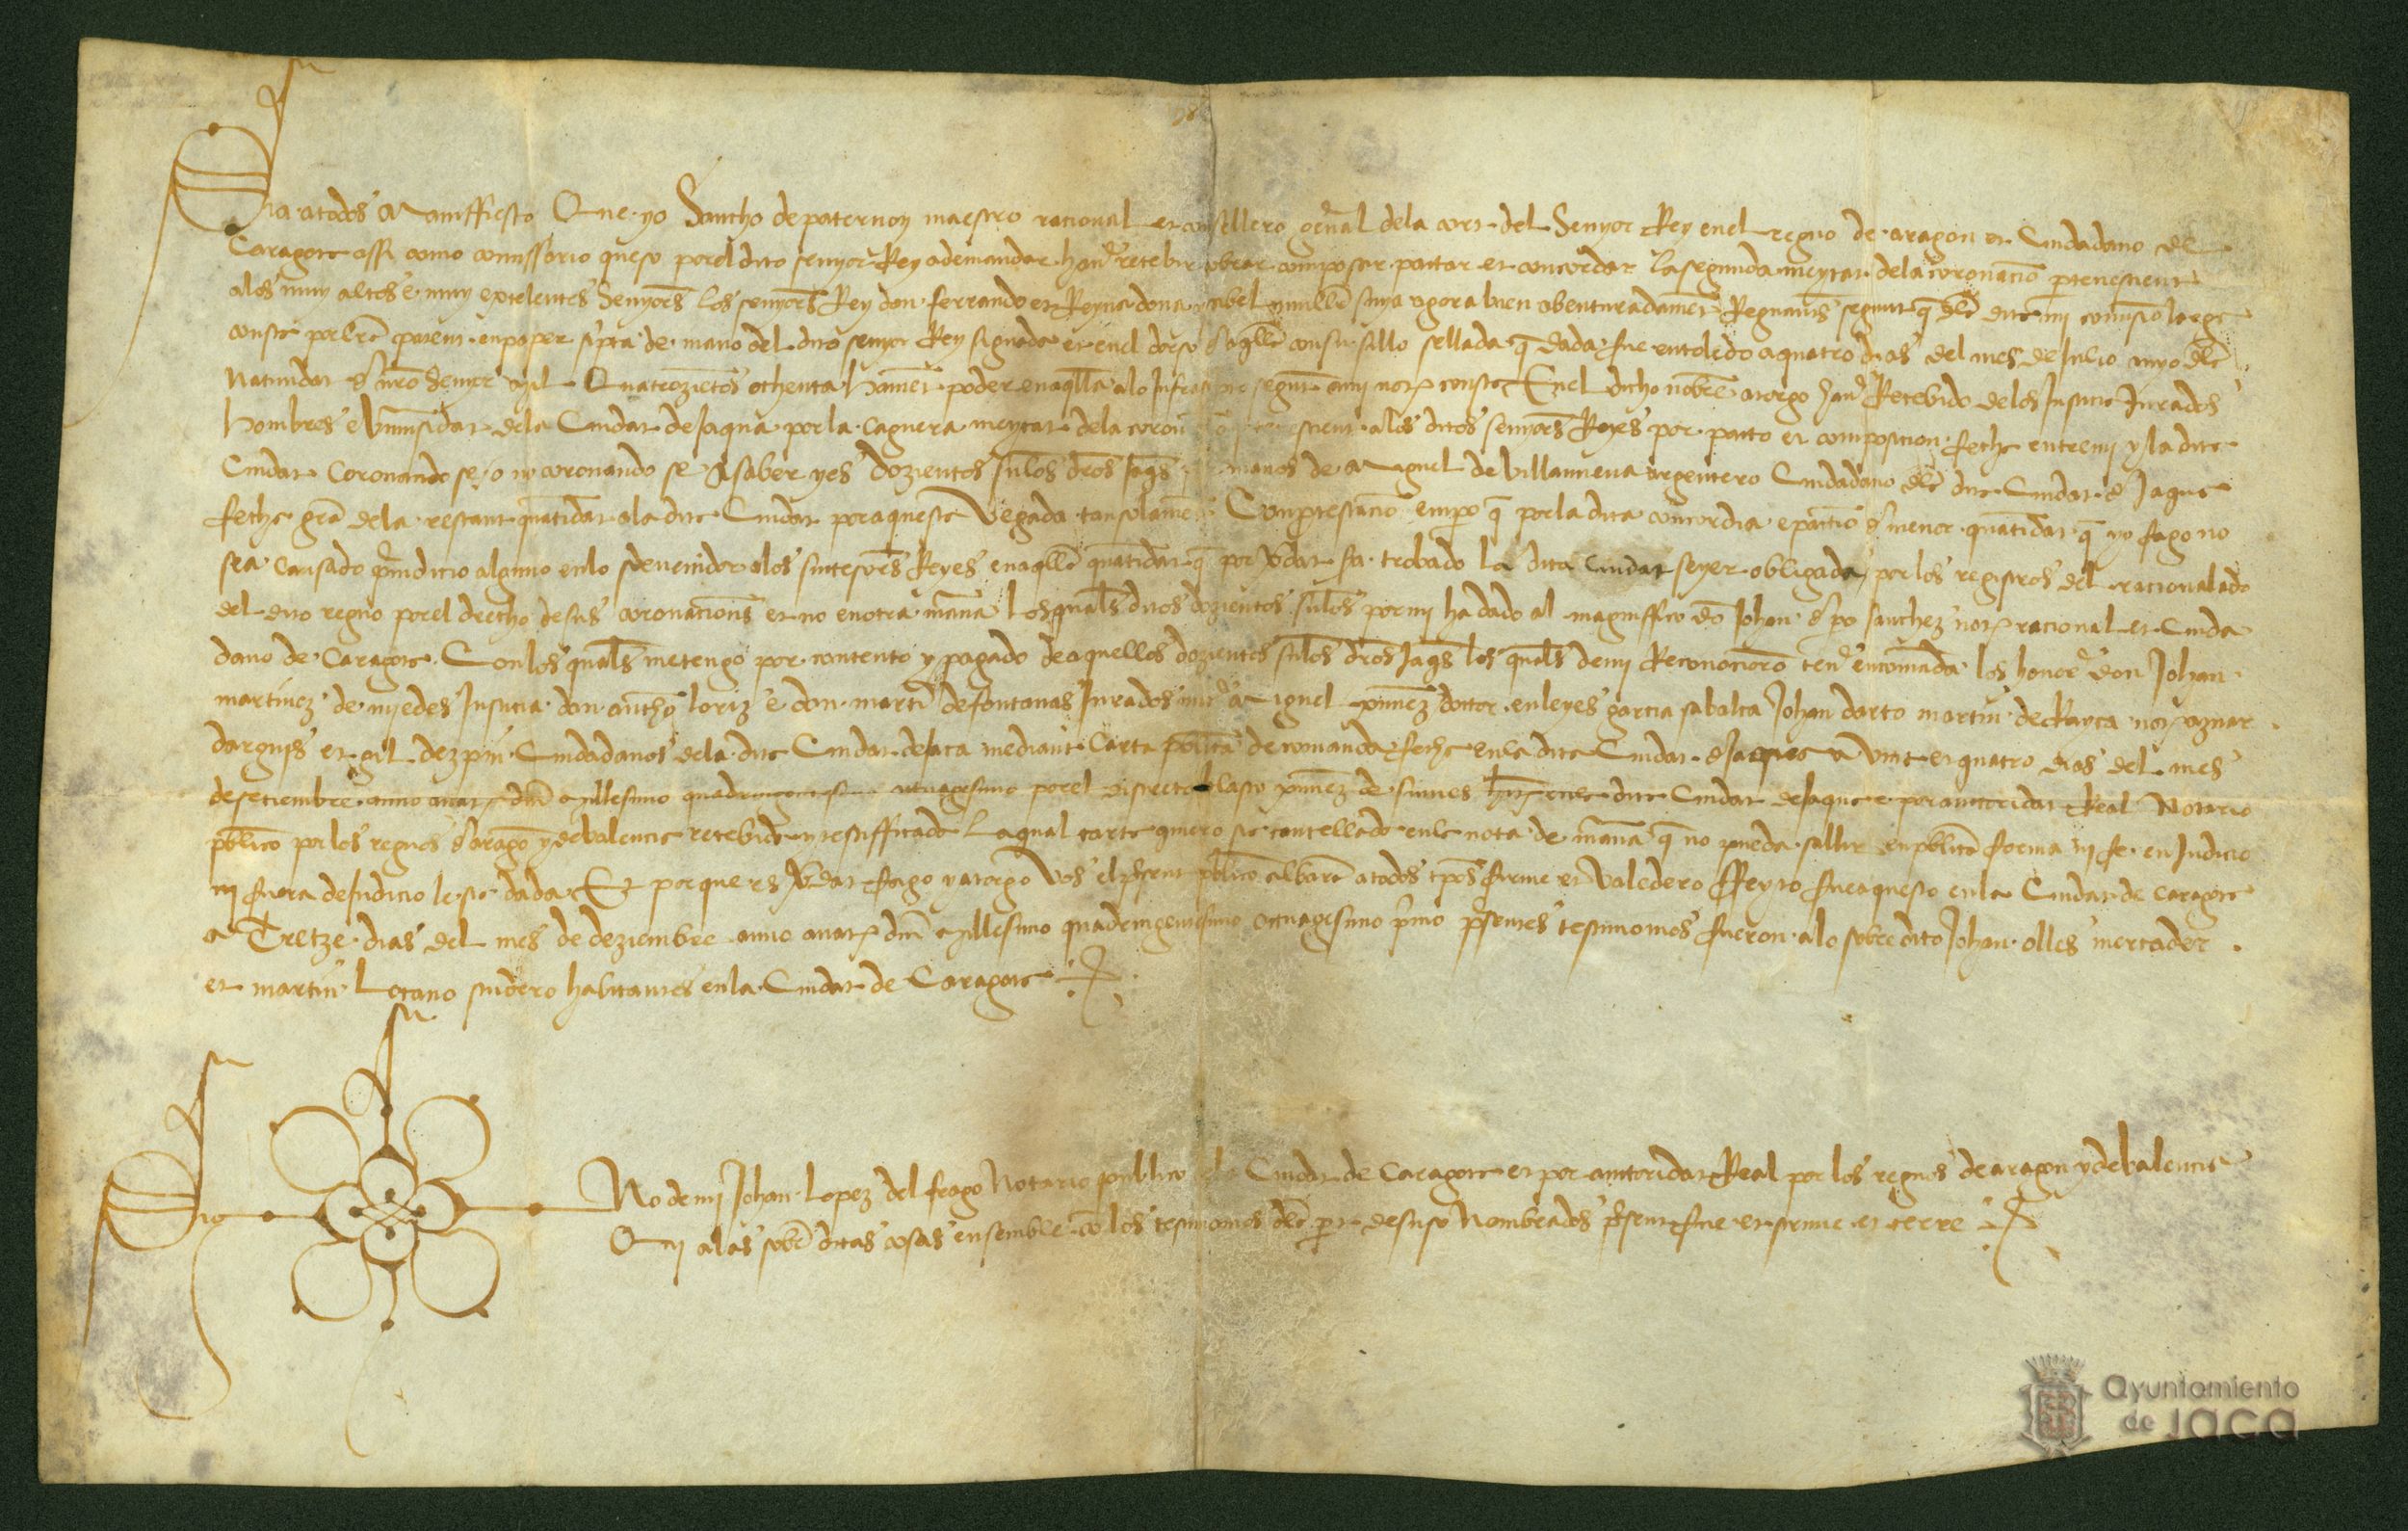 Sia a todos Maniffiesto Que yo Sancho de paternoy maestro racional et consellero general dela cort del Senyor Rey enel regno de aragon et Ciudadano de
Caragoca assi como comissario queso porel dito senyor Rey ademandar hauer recebir cobrar composar pactar et concordar la segunda meytat dela coronacio pertenescient
alos muy altos e muy excelentes Senyores los senyores Rey don ferrando et Reyna dona ysabel muller suya agora bien abenturadament Regnantes segunt que dela dita mi comissio larga
consta por letra patent en paper scripta de mano del dito senyor Rey signada et enel dorso de aquella con su sillo sellada que dada fue en toledo a quatro dias del mes de Julio anyo dela
Natiuidat de nuestro Senyor Mil Quatrozientos ochenta hauient poder en aquella alo Infrascripto segunt ami notario consta Enel dicho nombre atorgo hauer Recebido delos Justicia Jurados
hombres e vniuersidat dela Ciudat de Jaqua por la caguera meytat dela coronacio pertenescient alos ditos senyores Reyes por pacto et composicion fecha entre mi y la dita
Ciudat Coronando se o no coronando se A saber yes Dozientos sueldos dineros Jaqueses por manos de Miguel de Villanueua argentero Ciudadano dela dita Ciudat de Jaqua
fecha gracia dela restant quantidat ala dita Ciudat por aquesta Vegada tan solament Con protestacio empero que por la dita concordia e pactio de menor quantidat que yo fago no
sea causado preiudicio alguno enlo sdeuenidor alos successores Reyes en aquella quantidat que por verdat sia trobado la dita Ciudat seyer obligada por los registros del racionalado
del dito regno porel drecho de sus coronaciones et no en otra manera Los quales ditos dozientos sueldos por mi ha dado al magniffico don Johan de po sanchez notario racional et Ciuda
dano de Caragoca Con los quales me tengo por contento y pagado de aquellos dozientos sueldos dineros Jaqueses los quales demi Reconocieron tener en comanda los honorables don Johan
martinez de nyedes Justicia don anthon loriz e don martin de fontanas Jurados Miguel ximenez doctor en leyes garcia sabalca Johan darto martin de Rayca notario aznar
darguis et gil dezpin Ciudadanos dela dita Ciudat de Jaca mediant Carta publica de comanda fecha enla dita Ciudat de Jaqua a vint et quatro dias del mes
de setiembre anno a natiuitate domini Millesimo quadringentesimo octuagesimo por el discreto blasco ximenez de sinues habitant enla dita Ciudat de Jaqua e por auctoridat Real Notario
publico por los regnos de aragon y de valencia recebida y testifficada La qual carta quiero sia cancellada enla nota de manera que no pueda sallir en publica forma ni fe en Judicio
ni fuera de Judicio le sia dada Et porque es verdat fago y atorgo Vos el present publico albaran a todos tiempos firme et valedero ffeyto fue aquesto enla Ciudat de Caragoca
a Tretze dias del mes de deziembre anno a natiuitate domini Millesimo quadringentesimo octuagesimo primo presentes testimonios fueron alo sobredito Johan olles mercader
et martin Locano scudero habitantes enla Ciudat de Caragoca
Sig No de mi Johan Lopez del frago Notario publico dela Ciudat de Caragoca et por auctoridat Real por los regnos de aragon y de valencia
Qui alas sobre ditas cosas ensemble con los testimonios dela part de suso Nombrados present fue et scriuie et cerre
Ayuntamiento
de Jaca